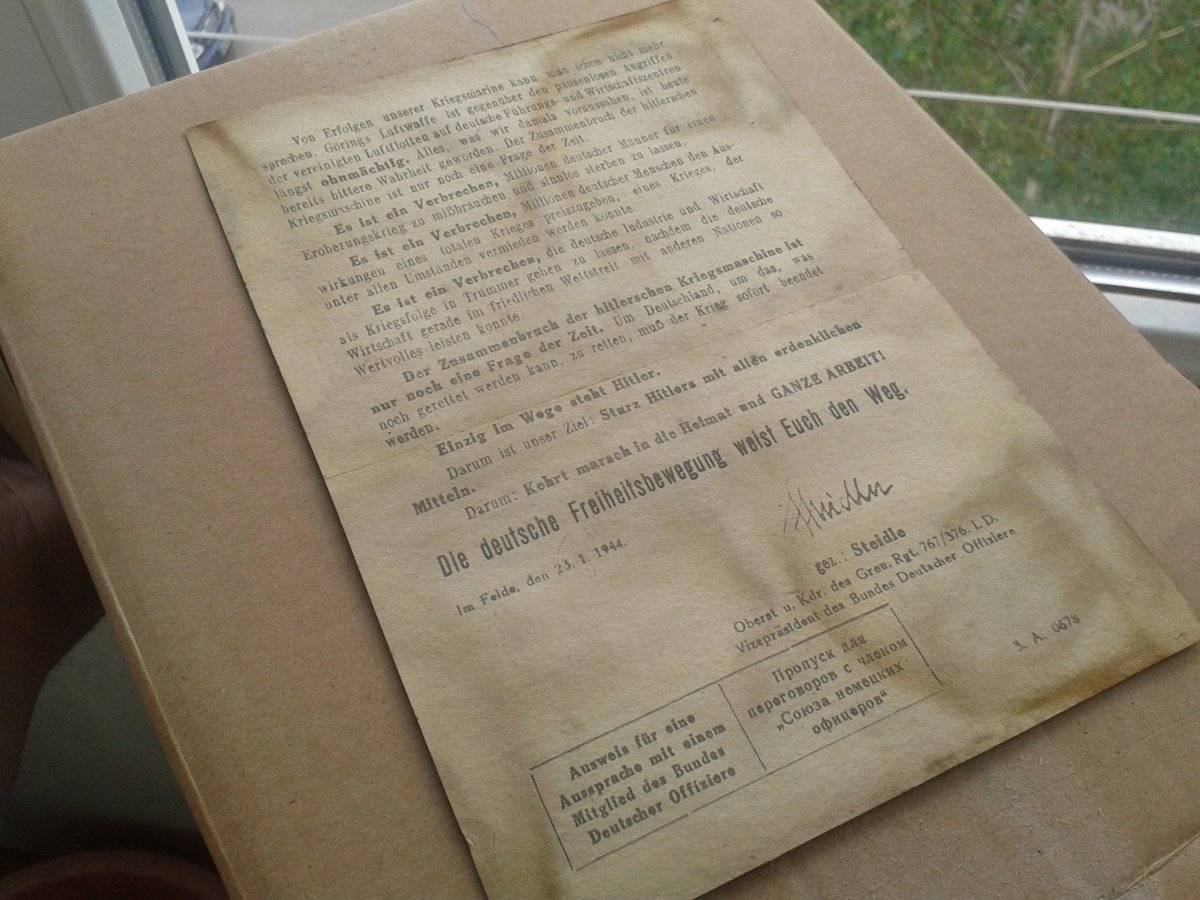 Von Erfolgen unserer Kriegsmarine kann man schon nicht mehr
sprechen. Görings Luftwaffe ist gegenüber den pausenlosen Angriffen
der vereinigten Luftflotten auf deutsche Führungs- und Wirtschaftszentren
längst ohnmächtig. Alles, was wir damals voraussahen, ist heute
bereits bittere Wahrheit geworden. Der Zusammenbruch der hitlerschen
Kriegsmaschine ist nur noch eine Frage der Zeit.
Es ist ein Verbrechen, Millionen deutscher Männer für einen
Eroberungskrieg zu mißbrauchen und sinnlos sterben zu lassen.
Es ist ein Verbrechen, Millionen deutscher Menschen den Aus-
wirkungen eines totalen Krieges preiszugeben, eines Krieges, der
unter allen Umständen vermieden werden konnte.
Es ist ein Verbrechen, die deutsche Industrie und Wirtschaft
als Kriegsfolge in Trümmer gehen zu lassen, nachdem die deutsche
Wirtschaft gerade im friedlichen Wettstreit mit anderen Nationen so
Wertvolles leisten konnte.
Der Zusammenbruch der hitlerschen Kriegsmaschine ist
nur noch eine Frage der Zeit. Um Deutschland, um das, was
noch gerettet werden kann, zu retten, muß der Krieg sofort beendet
werden.
Einzig im Wege steht Hitler.
Darum ist unser Ziel: Sturz Hitlers mit allen erdenklichen
Mitteln.
Darum: Kehrt marsch in die Heimat und GANZE ARBEIT!
Die deutsche Freiheitsbewegung weist Euch den Weg.
Im Felde, den 23. 1. 1944.
gez.: Steidle
Oberst u. Kdr. des Gren. Rgt. 767/376. I. D.
Vizepräsident des Bundes Deutscher Offiziere
3. A. 0678
Ausweis für eine
Aussprache mit einem
Mitglied des Bundes
Deutscher Offiziere
Пропуск для
переговоров с членом
„Союза немецких
офицеров“